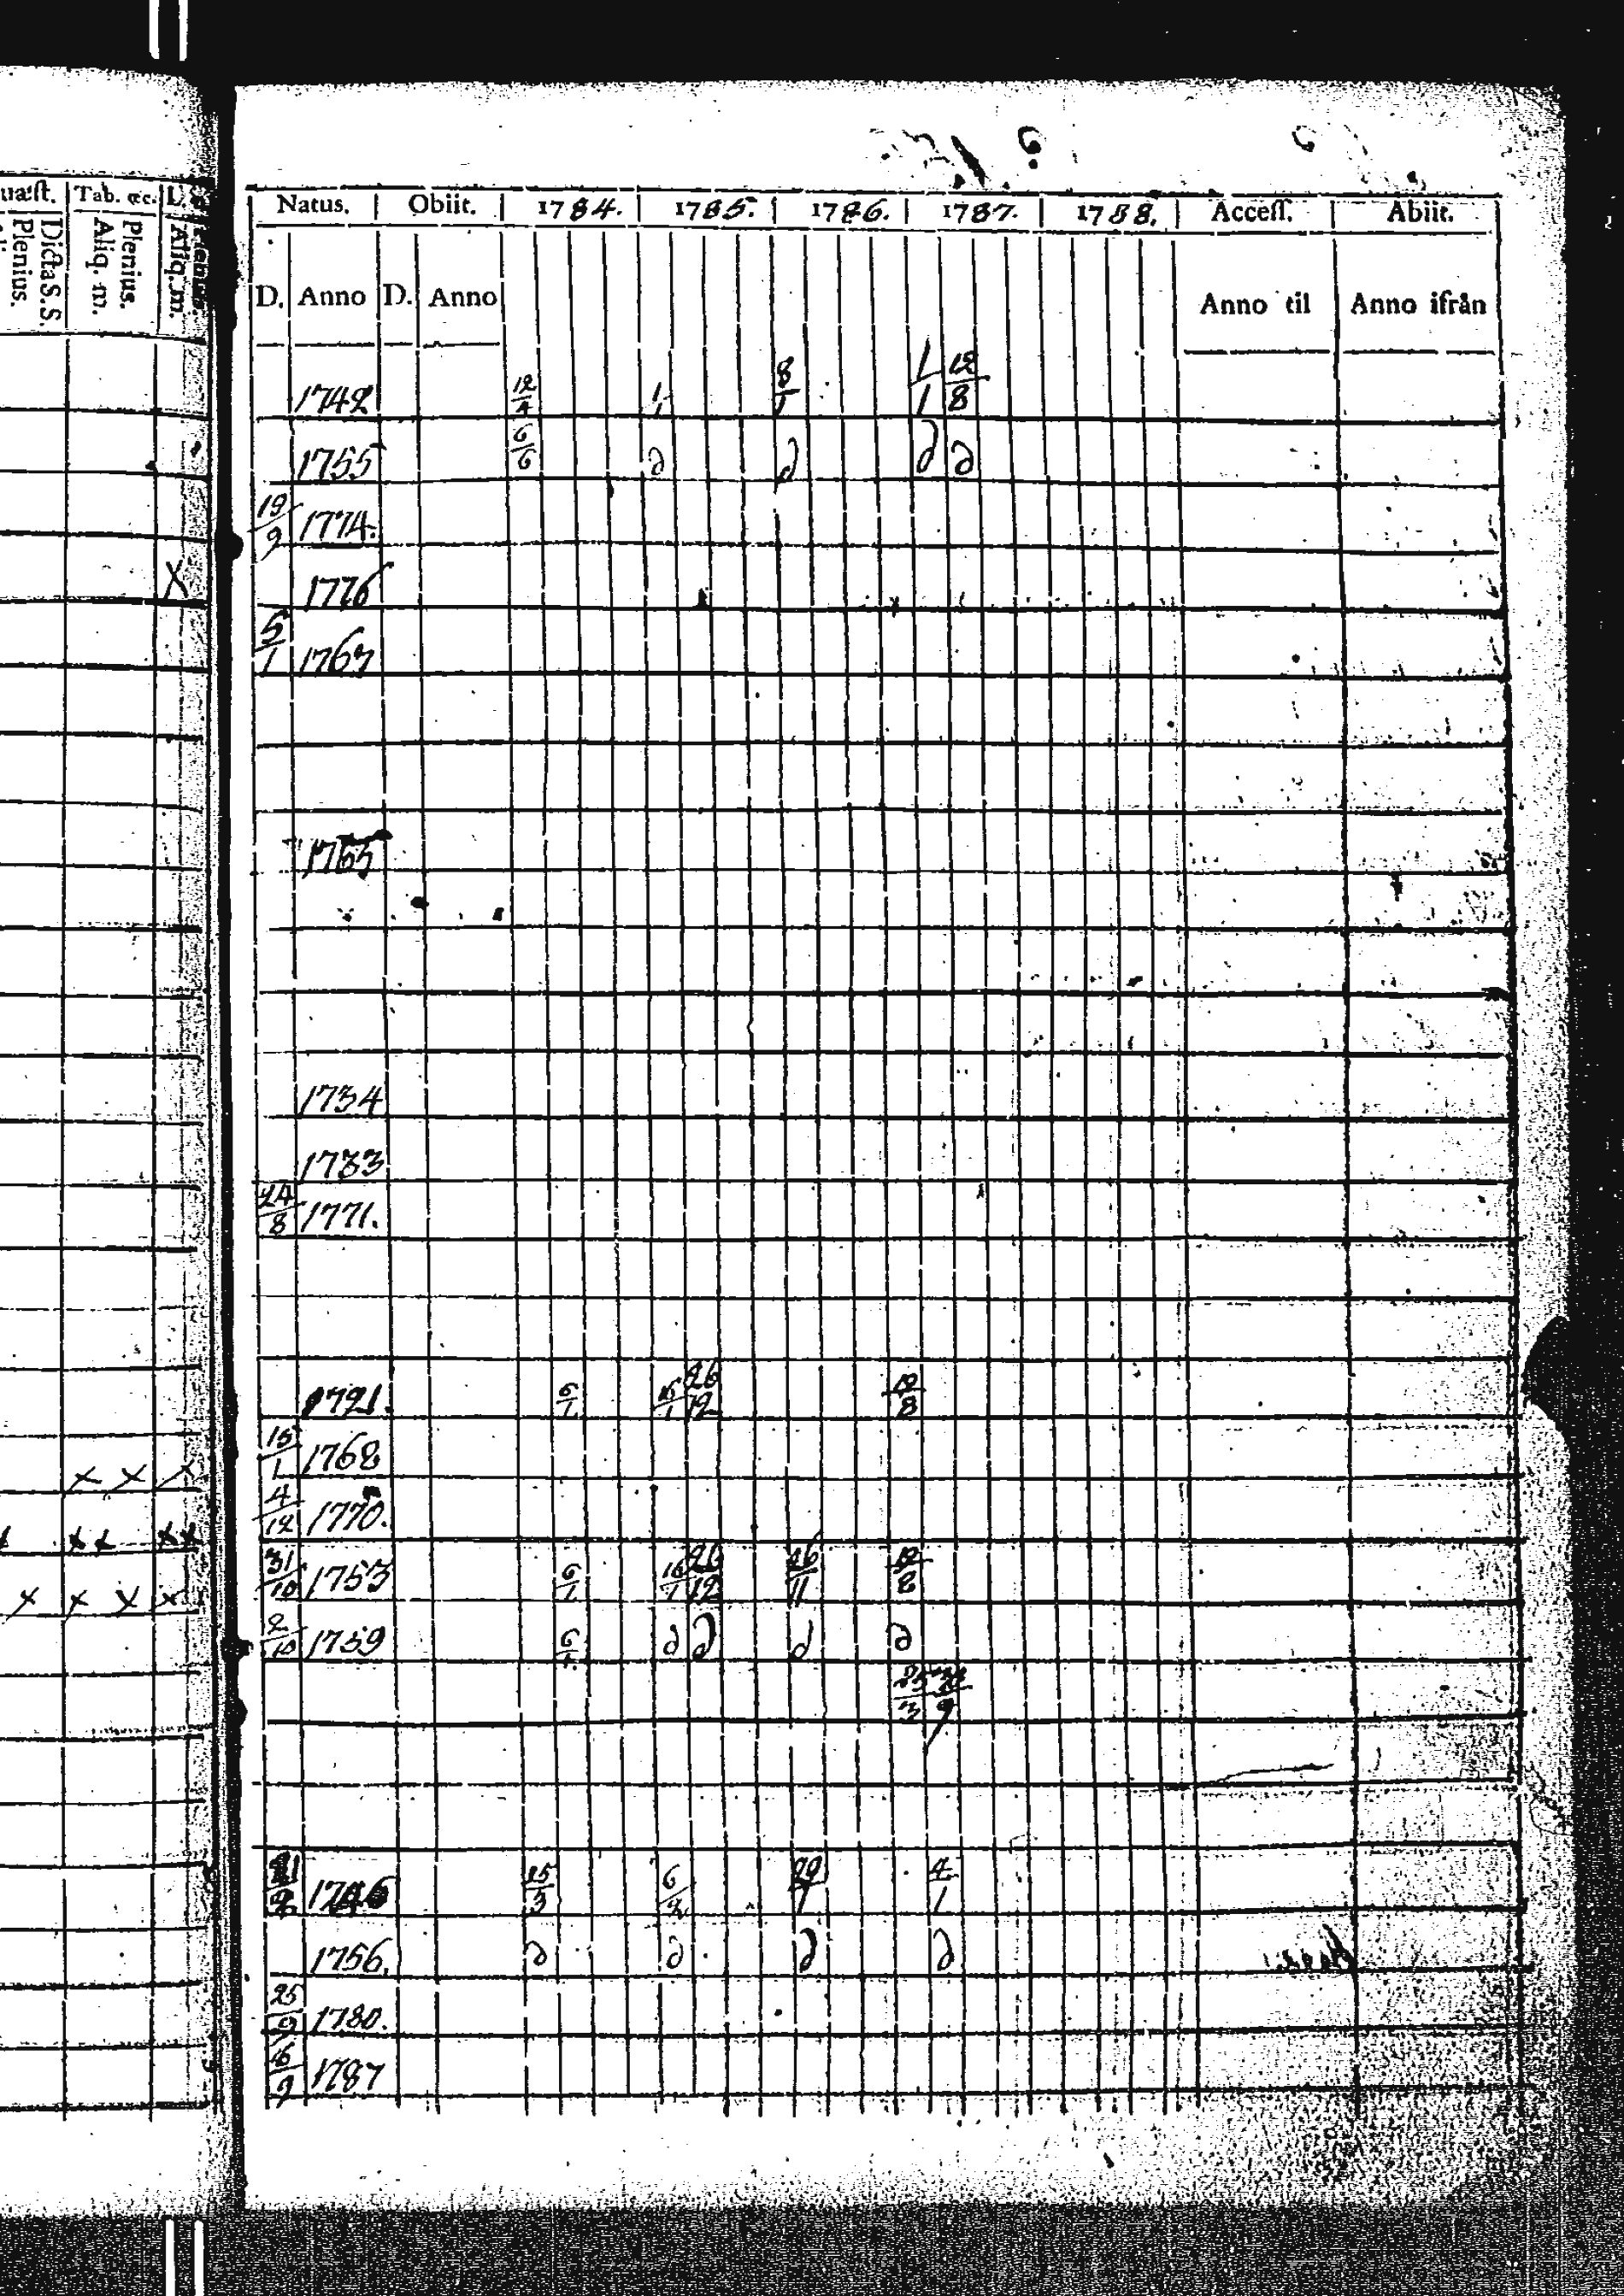 uæst. Tab. &c. L.
Dicta S.S.
Plenius.
Plenius.
Aliq. m.
Aliq. m.
Natus. Obiit. 1784. 1785. 1786. 1787. 1788. Access. Abiit.
D. Anno D. Anno Anno til Anno ifrån
1742 12/4 1/1 8/1 1/1 12/8
1755 6/6 d d d d
19/9 1774.
X
1776
5/1 1767
1765
1734
1733
24/8 1771.
1721. 6/1 16/1 26/12 12/8
15/1 1768
x x x
4/12 1770.
x x x x
31/10 1753 6/1 16/1 26/12 26/11 12/8
x x x x
2/10 1759 6/1 d d d d
1746 25/3 6/2 4/1
1756. d d d d
25/9 1780.
1787